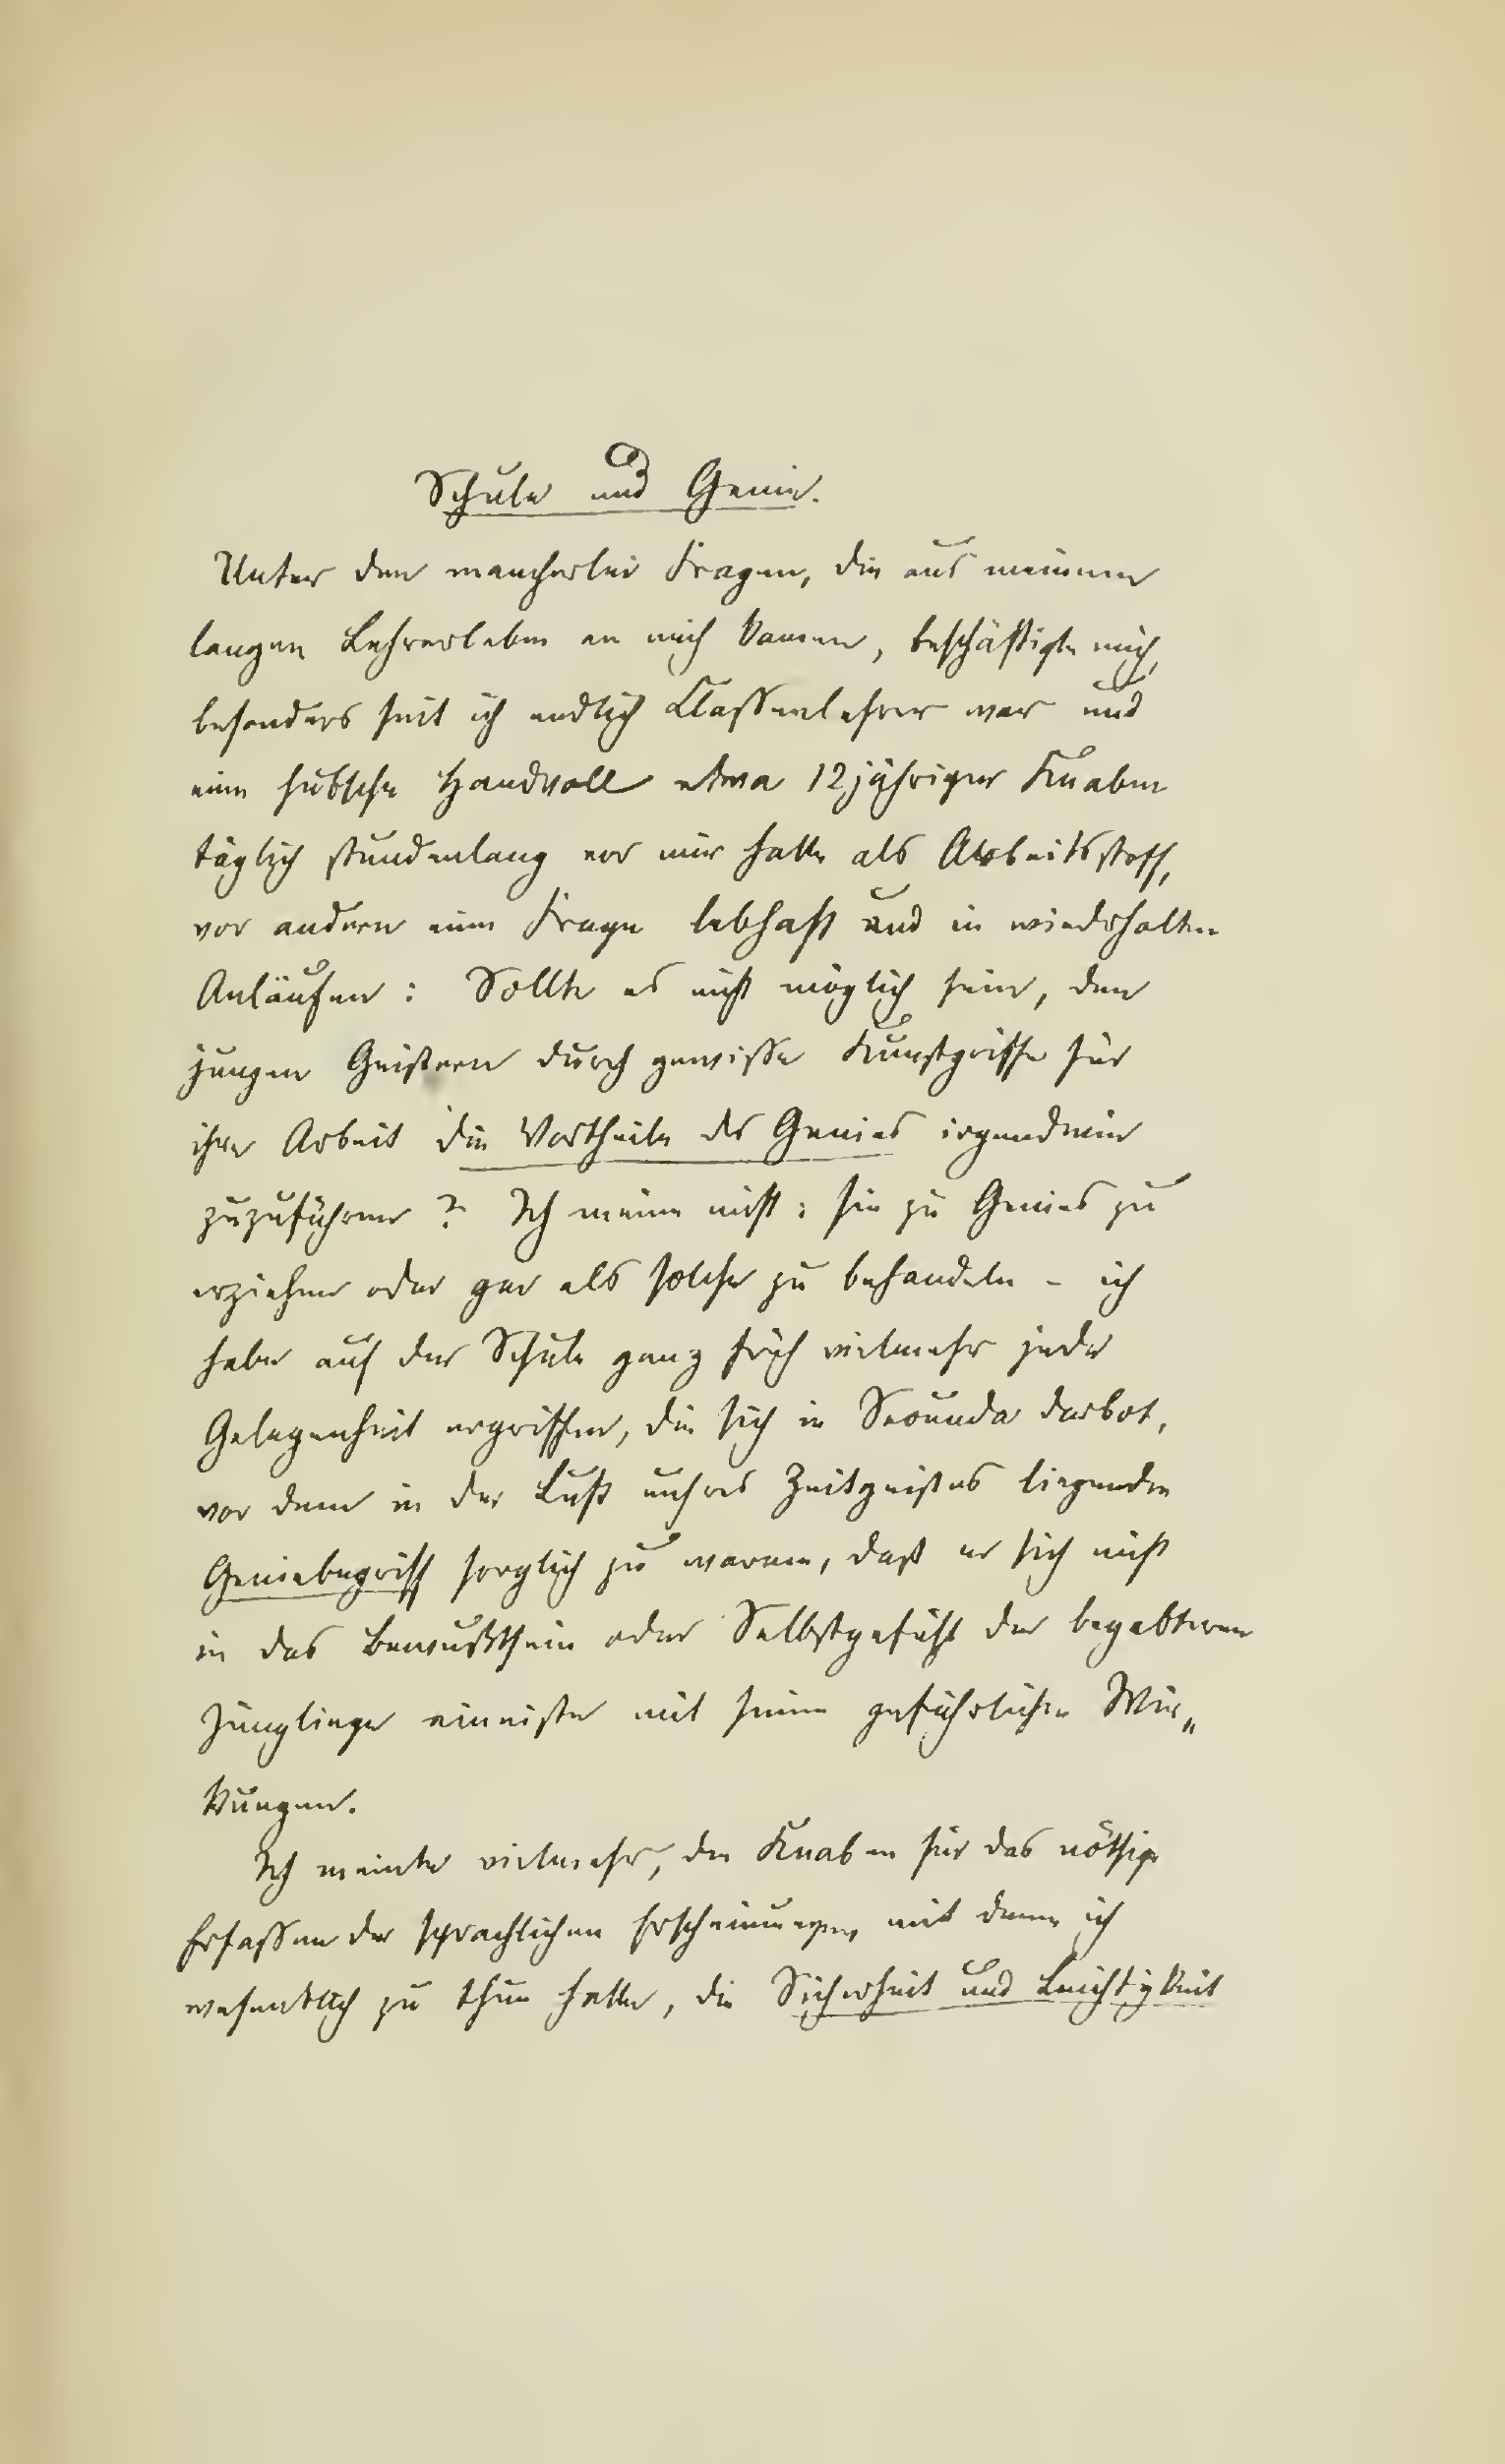 Schule und Genie.
Unter den mancherlei Fragen, die aus meinem
langen Lehrerleben an mich kamen, beschäftigte mich,
besonders seit ich endlich Classenlehrer war und
eine hübsche Handvoll etwa 12jähriger Knaben
täglich stundenlang vor mir hatte als Arbeitsstoff,
vor andern eine Frage lebhaft und in wiederholten
Anläufen: Sollte es nicht möglich sein, den
jungen Geistern durch gewisse Kunstgriffe für
ihre Arbeit die Vortheile des Genies irgendwie
zuzuführen? Ich meine nicht: sie zu Genies zu
erziehen oder gar als solche zu behandeln - ich
habe auf der Schule ganz früh vielmehr jede
Gelegenheit ergriffen, die sich in Secunda darbot,
vor dem in der Luft unsres Zeitgeistes liegenden
Geniebegriff sorglich zu warnen, daß er sich nicht
in das Bewußtsein oder Selbstgefühl der begabteren
Jünglinge einniste mit seinen gefährlichen Wir„
kungen.
Ich meinte vielmehr, den Knaben für das nöthige
Erfassen der sprachlichen Erscheinungen, mit denen ich
wesentlich zu thun hatte, die Sicherheit und Leichtigkeit